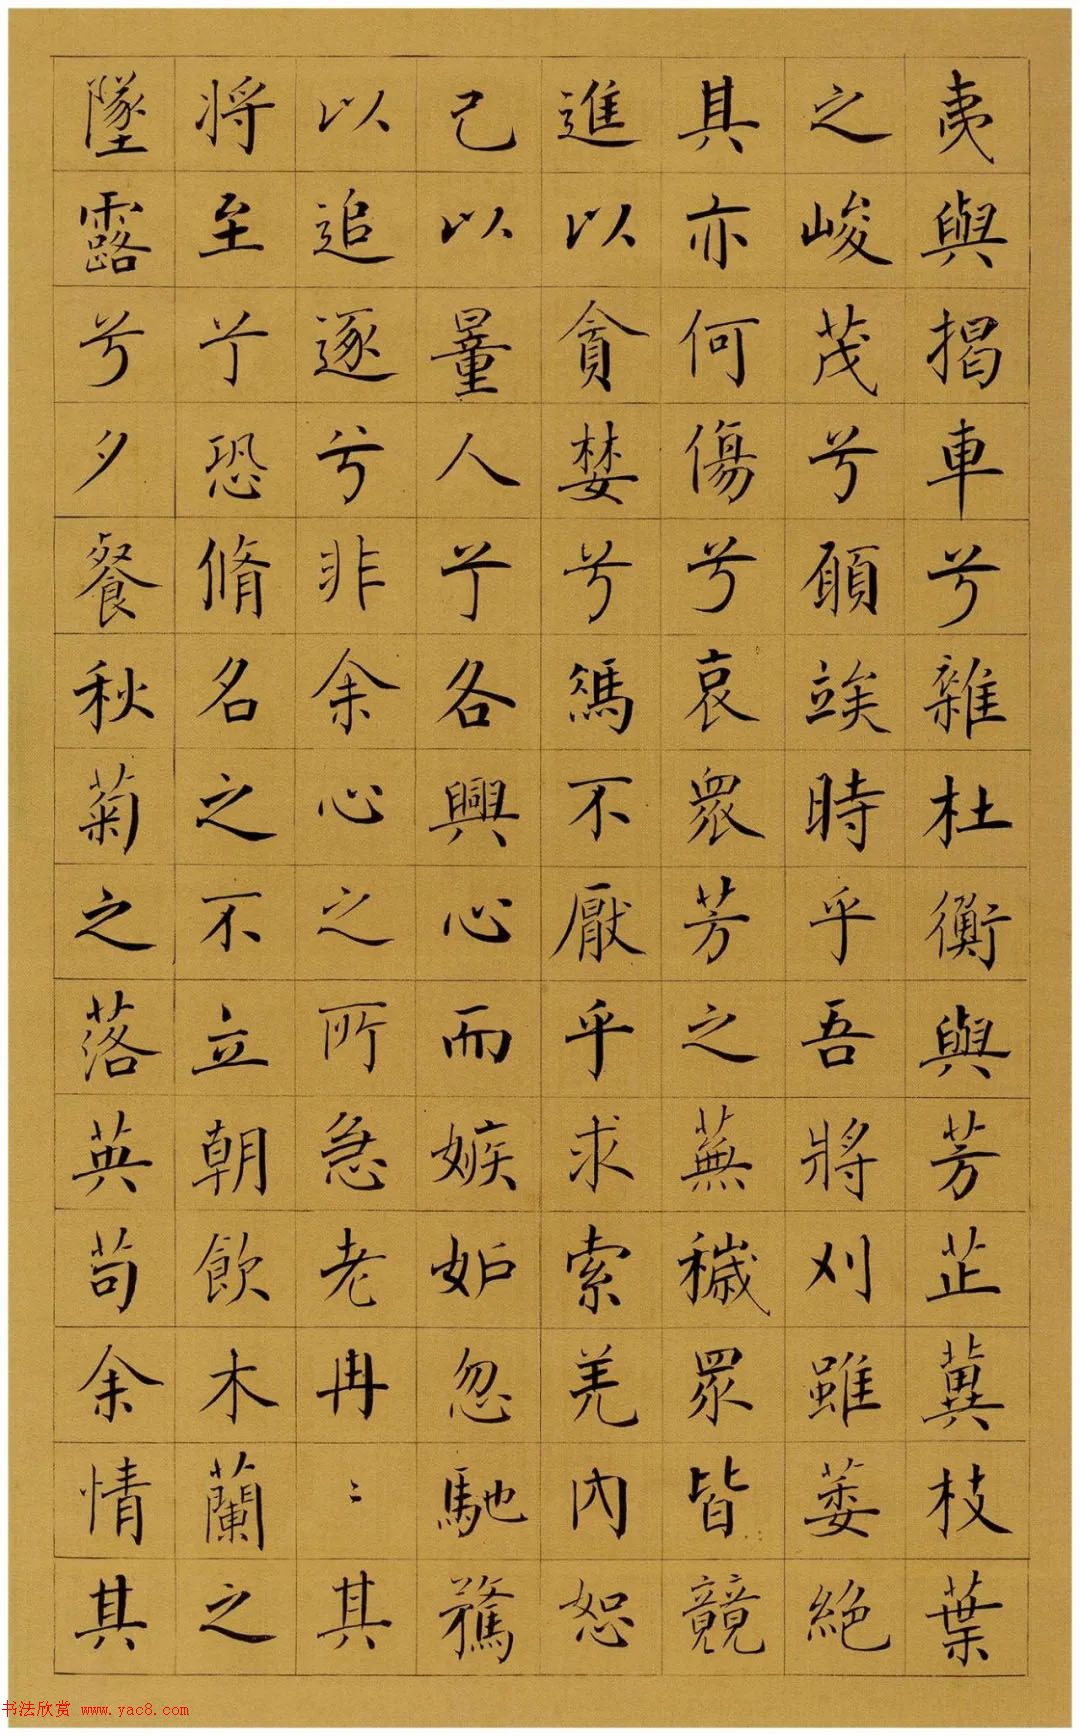 夷與揭車兮雜杜衡與芳芷冀枝葉
之峻茂兮願竢時乎吾將刈雖萎絶
其亦何傷兮哀衆芳之蕪穢眾皆競
進以貪婪兮憑不厭乎求索羌內恕
己以量人兮各興心而嫉妒忽馳騖
以追逐兮非余心之所急老冉〻其
将至兮恐脩名之不立朝飲木蘭之
墜露兮夕餐秋菊之落英苟余情其
书法欣赏 www.yac8.com